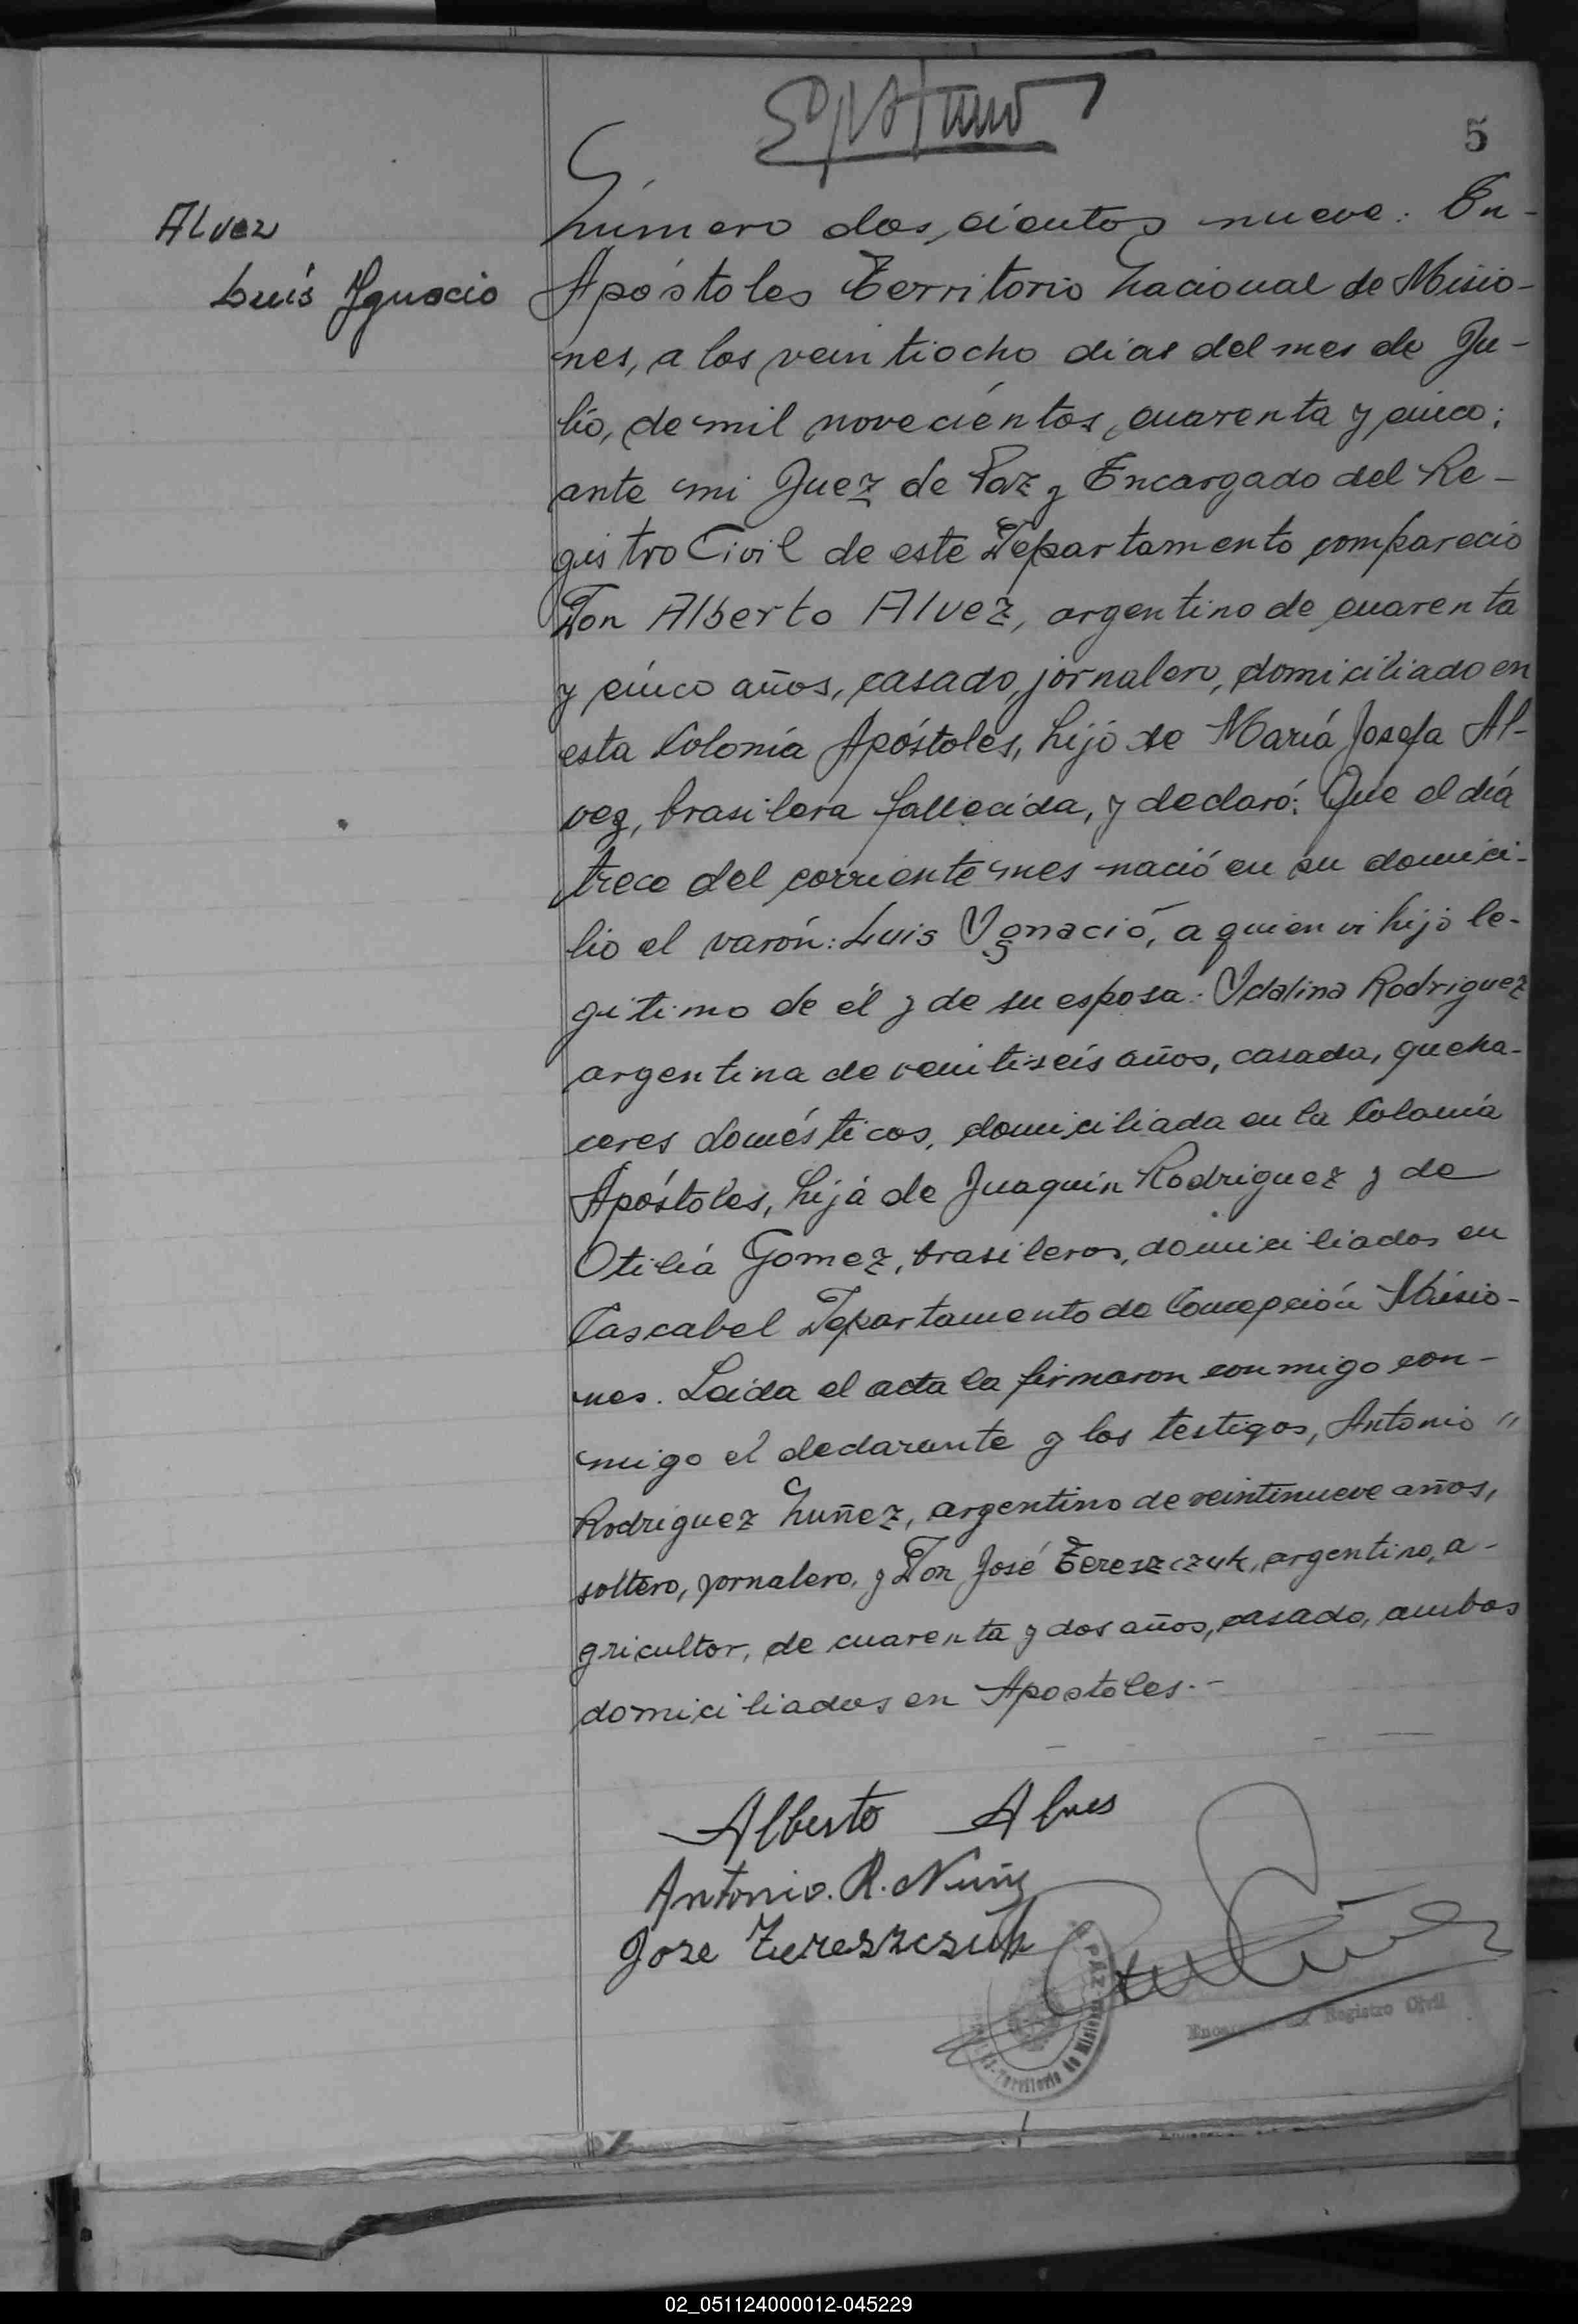 5
Alvez
Luís Ygnacio
Número dos,cientos nueve: En-
Apóstoles Territorio Nacional de Misio-
nes, a los veintiocho días del mes de Ju-
lio, de mil novecientos, cuarenta y cinco;
ante mi Juez de Paz y Encargado del Re-
gistro Civil de este Departamento compareció
Don Alberto Alvez, argentino de cuarenta
y cinco años, casado, jornalero, domiciliado en
esta Colonia Apóstoles, hijo de María Josefa Al-
vez, brasilera fallecida, y declaró: Que el día
trece del corriente mes nació en su domici-
lio el varón: Luis Ygnació, a quien vi hijo le-
gitimo de él y de su esposa: Ydalina Rodriguez
argentina de veintiseis años, casada, queha-
ceres domésticos, domiciliada en la Colonia
Apóstoles, hija de Juaquin Rodriguez y de
Otilia Gomez, brasileros, domiciliados en
Cascabel Departamento de Concepción Misio-
nes. Leida el acta la firmaron conmigo con-
migo el declarante y los testigos, Antonio "
Rodriguez Nuñez, argentino de veintinueve años,
soltero, jornalero, y Don José Tereszczuk, argentino, a-
gricultor, de cuarenta y dos años, casado, ambos
domiciliados en Apostoles.-
Alberto Alves
Antonio. R. Nuñez
Jose Tereszczuk
PAZ
Territorio de Misiones
Registro Civil
02_051124000012-045229